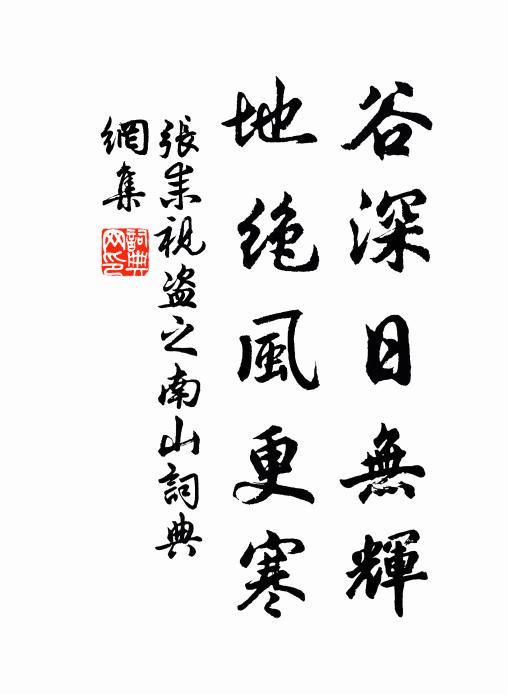 谷深日無輝
地絶風更寒
張耒視盜之南山詞典
網集
詞典
网印